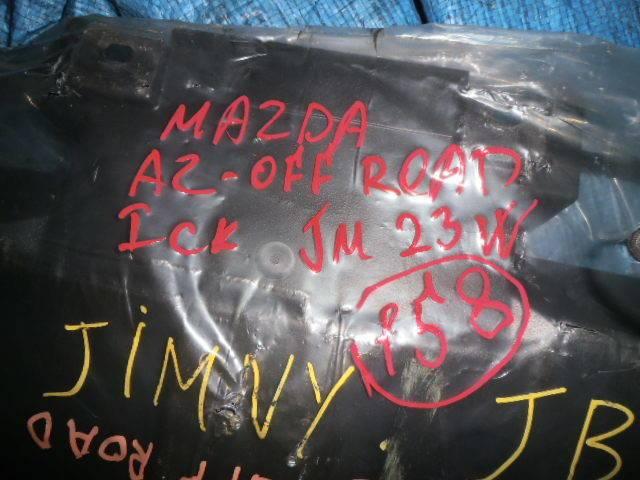 MAZDA
AZ-OFF ROAD
ICK JM 23W
158
JiMNY. JB
ROAD